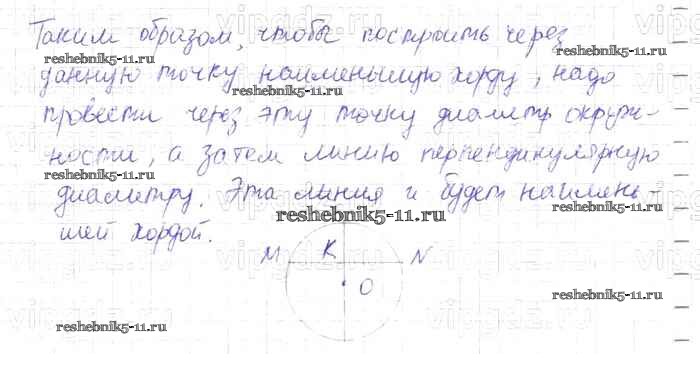 Таким образом, чтобы построить через
данную точку наименьшую хорду, надо
провести через эту точку диаметр окруж-
ности, а затем линию перпендикулярную
диаметру. Эта линия и будет наимень-
шей хордой.
M K N
O
reshebnik5-11.ru
reshebnik5-11.ru
reshebnik5-11.ru
reshebnik5-11.ru
reshebnik5-11.ru
reshebnik5-11.ru
reshebnik5-11.ru
reshebnik5-11.ru
vipgdz.ru
vipgdz.ru
vipgdz.ru
vipgdz.ru